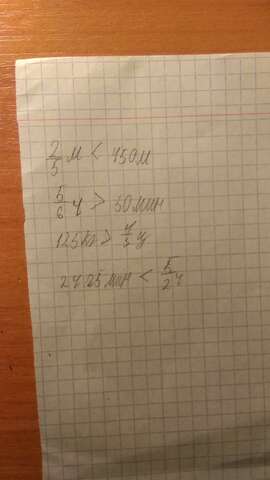 2/5 м < 450м
5/6 ч > 50 мин
125кг > 4/5 ц
2ч 25 мин < 5/2 ч